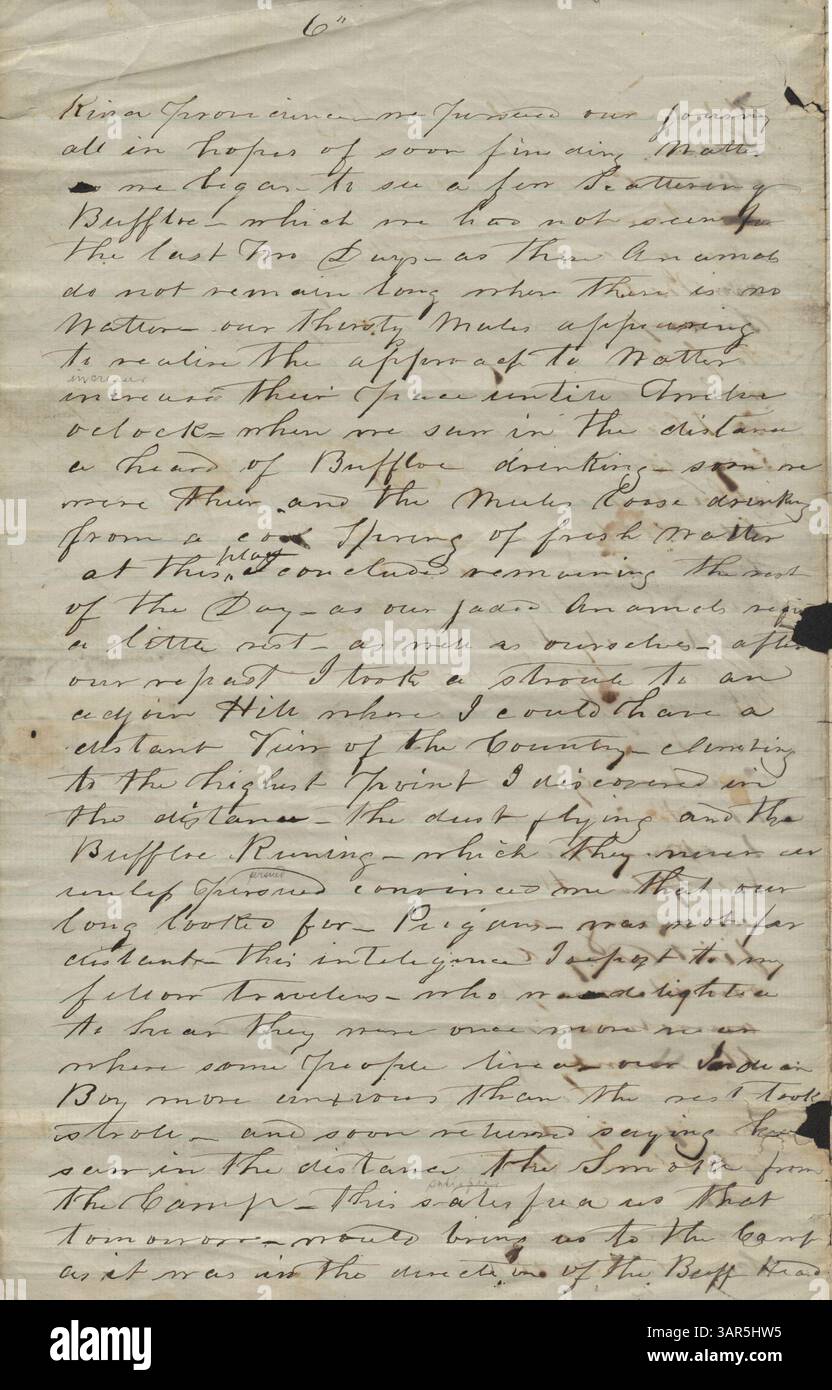 6"
Kind providence we pursued our journy
all in hopes of soon finding Watter
as we began to see a few Scattering
Buffloe - which we had not seen for
the last Two Days - as these Anamals
do not remain long where there is no
Watter - our thirsty Mules appearing
to realise the approach to Watter
increase
increased their pace untill Twelve
oclock - when we saw in the distance
a heard of Buffloe drinking - soon we
were their and the Mules loose drinking
from a cool Spring of fresh Watter
at this place concluded remaining the rest
of the Day - as our jaded Anamals
a little rest - as well as ourselves - after
our repast I took a stroule to an
adjoin Hill where I could have a
distant View of the Country - climbing
to the highest point I discovered in
the distance - the dust flying and the
Buffloe Runing - which they never
pursued
unless pursued convinced me that our
long looked for - Peigans - was not far
distant - this inteligence I report to my
fellow travelers - who was delighted
to hear they were once more near
where some people lived - our Indian
Boy more anxious than the rest took
strole - and soon returned saying he
saw in the distance the Smoke from
the Camp - this satisfied us that
tomorrow - would bring us to the Camp
as it was in the direction of the Buff Head
alamy
alamy
Image ID: 3AR5HW5
www.alamy.com